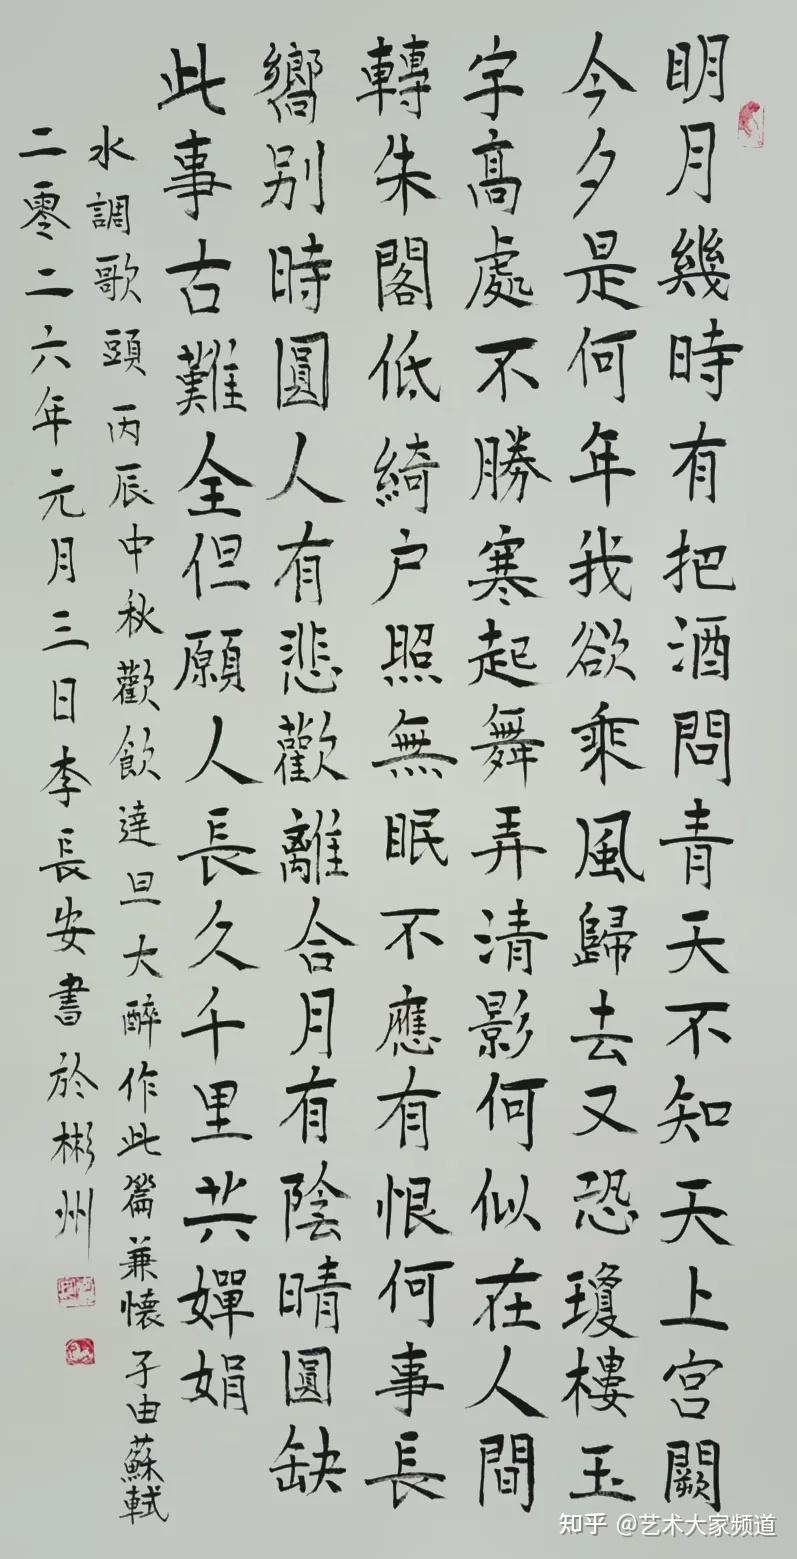 明月幾時有把酒問青天不知天上宫闕
今夕是何年我欲乘風歸去又恐瓊樓玉
宇高處不勝寒起舞弄清影何似在人間
轉朱閣低綺户照無眠不應有恨何事長
嚮别時圓人有悲歡離合月有陰晴圓缺
此事古難全但願人長久千里共嬋娟
水調歌頭丙辰中秋歡飲達旦大醉作此篇兼懷子由蘇軾
二零二六年元月三日李長安書於彬州
知乎 @艺术大家频道